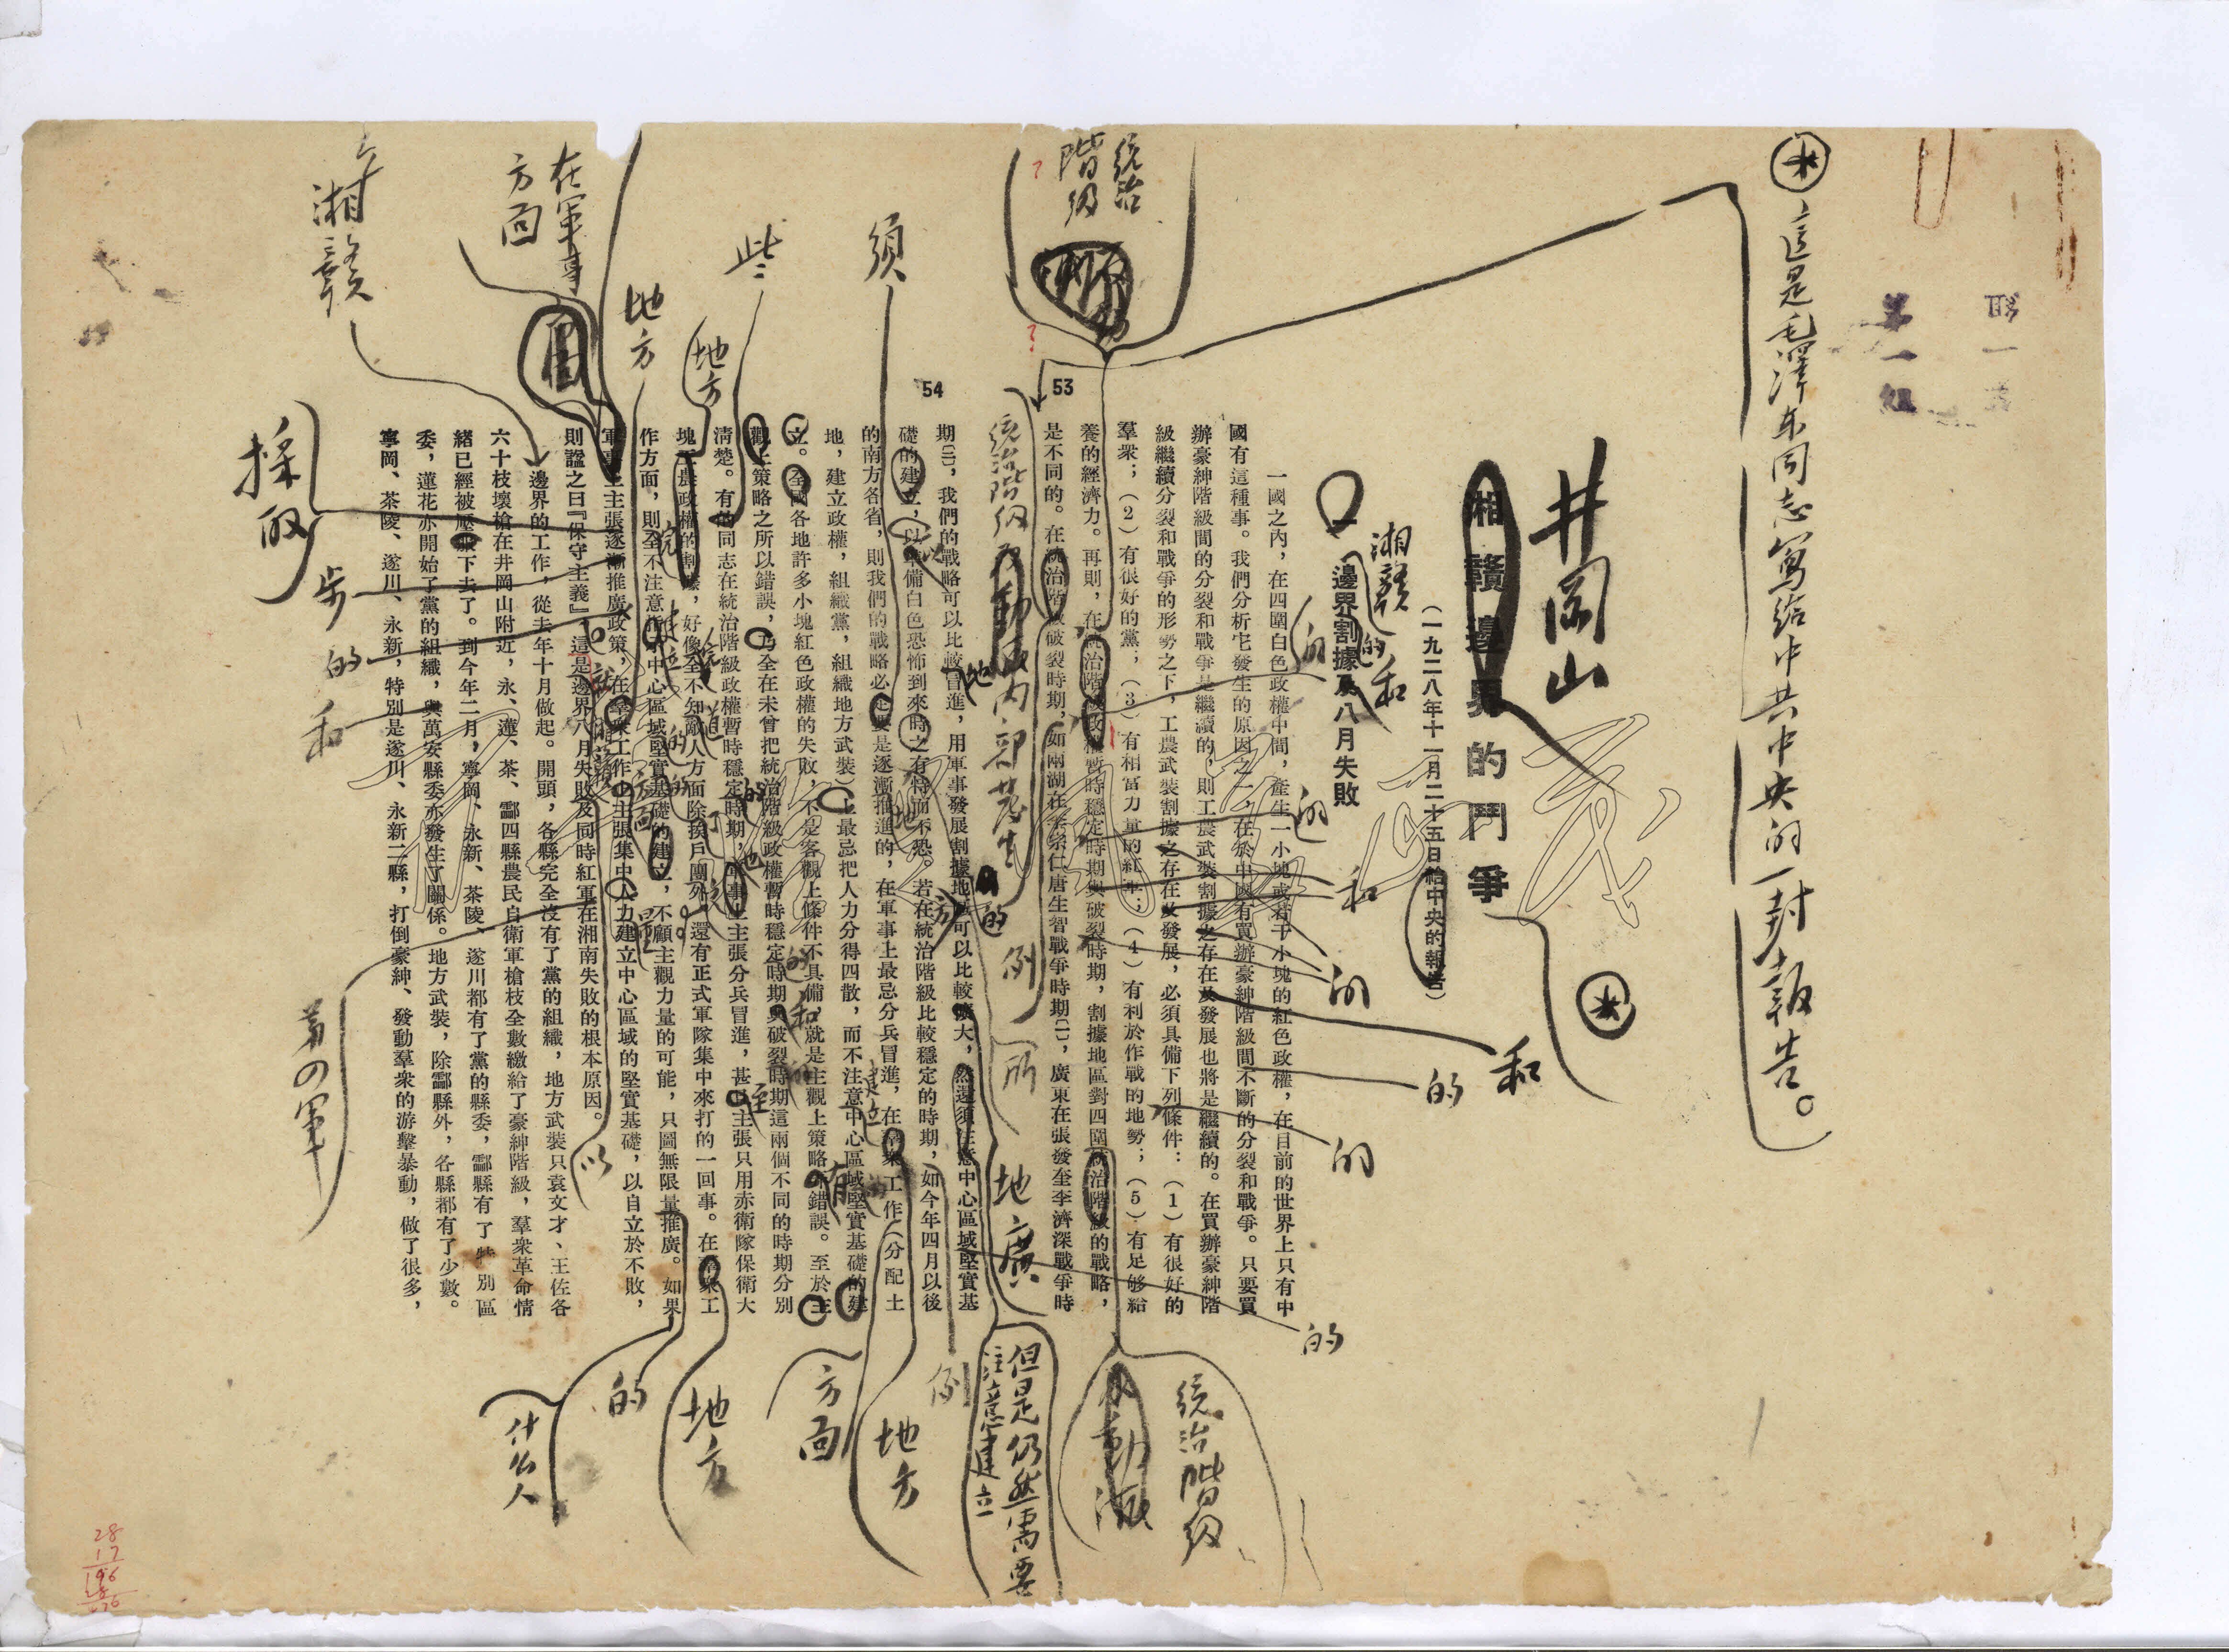 這是毛澤東同志寫給中共中央的一封報告。
井岡山
湘贛邊界的鬥爭
（一九二八年十一月二十五日給中央的報告）
湘贛
的
和
一 邊界割據及八月失敗
一國之內，在四圍白色政權中間，產生一小塊或若干小塊的紅色政權，在目前的世界上只有中
國有這種事。我們分析它發生的原因之一，在於中國有買辦豪紳階級間不斷的分裂和戰爭。只要買
辦豪紳階級間的分裂和戰爭是繼續的，則工農武裝割據之存在及發展也將是繼續的。在買辦豪紳階
級繼續分裂和戰爭的形勢之下，工農武裝割據之存在及發展，必須具備下列條件：（1）有很好的
羣衆；（2）有很好的黨；（3）有相當力量的紅軍；（4）有利於作戰的地勢；（5）有足够給
養的經濟力。再則，在統治階級政權暫時穩定時期與破裂時期，割據地區對四圍統治階級的戰略，
是不同的。在統治階級破裂時期，如兩湖在李宗仁唐生智戰爭時期〔一〕，廣東在張發奎李濟深戰爭時
53
期〔二〕，我們的戰略可以比較冒進，用軍事發展割據地
可以比較
大，然還須注意中心區域堅實基
礎的建立，以
備白色恐怖到來時之有恃而不恐。若在統治階級比較穩定的時期，如今年四月以後
的南方各省，則我們的戰略必
要是逐漸推進的，在軍事上最忌分兵冒進，在羣衆工作（分配土
地，建立政權，組織黨，組織地方武裝）上最忌把人力分得四散，而不注意中心區域堅實基礎的建
立。全國各地許多小塊紅色政權的失敗，不是客觀上條件不具備，就是主觀上策略
錯誤。至於主
觀上策略之所以錯誤，乃全在未曾把統治階級政權暫時穩定時期與破裂時期這兩個不同的時期分別
清楚。有的同志在統治階級政權暫時穩定時期，軍事上主張分兵冒進，甚
主張只用赤衛隊保衛大
塊工農政權的割據，好像全不知敵人方面除挨戶團外，還有正式軍隊集中來打的一回事。在羣衆工
作方面，則全不注意
中心區域堅實基礎的建立，不顧主觀力量的可能，只圖無限量推廣。如果
軍事上主張逐漸推廣政策，在羣衆工作上主張集中人力建立中心區域的堅實基礎，以自立於不敗，
則謚之曰『保守主義』。這是邊界八月失敗及同時紅軍在湘南失敗的根本原因。
邊界的工作，從去年十月做起。開頭，各縣完全沒有了黨的組織，地方武裝只袁文才、王佐各
六十枝壞槍在井岡山附近，永、蓮、茶、酃四縣農民自衛軍槍枝全數繳給了豪紳階級，羣衆革命情
緒已經被壓
下去了。到今年二月，寧岡、永新、茶陵、遂川都有了黨的縣委，酃縣有了特別區
委，蓮花亦開始了黨的組織，與萬安縣委亦發生了關係。地方武裝，除酃縣外，各縣都有了少數。
寧岡、茶陵、遂川、永新，特別是遂川、永新二縣，打倒豪紳、發動羣衆的游擊暴動，做了很多，
54
統治
階級
須
些
地方
地方
在軍事
方面
湘贛
採取
步
的
和
着の軍
的
的
和
的
和
的
的
的
統治階級
內部發生
的
例
所
地
廣
統治階級
但是仍然需要
注意建立
例
地方
方面
地方
的
什么人
以
第一組
28
17
196
28
476